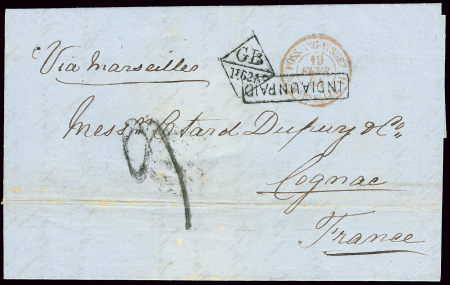 Via Marseilles
GB
1F62 4/10
INDIA UNPAID
19
Mess Otard Dupuy & Co
Cognac
France